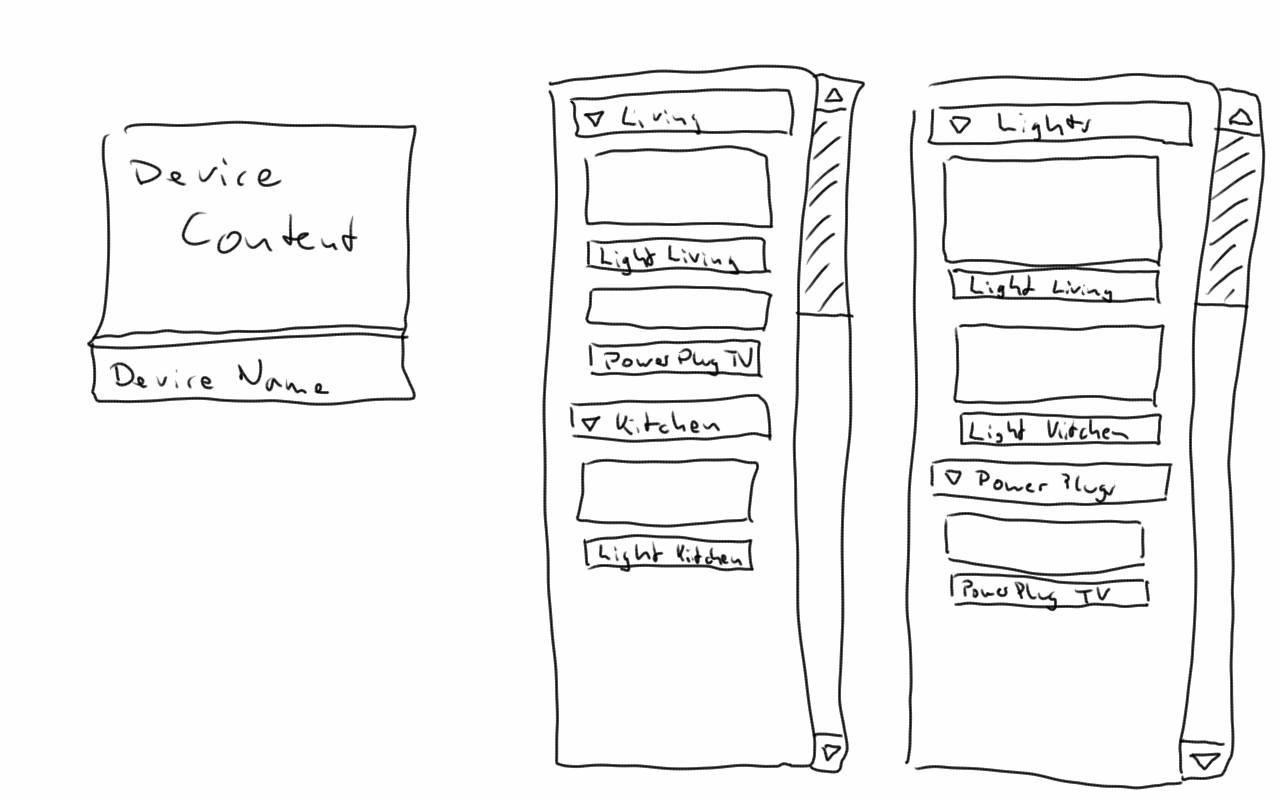 Device
Content
Device Name
Living
Light Living
PowerPlug TV
Kitchen
Light Kitchen
Lights
Light Living
Light Kitchen
Power Plugs
PowerPlug TV